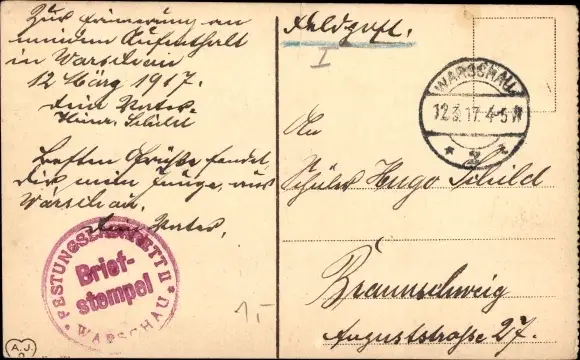 Zur Erinnerung an
meinen Aufenthalt
in Warschau
12 März 1917.
Dein Vater.
Heinr. Schild
Besten Grüße sendet
Dir mein Junge, aus
Warschau.
Dein Vater.
FESTUNGSLAZARETT II
Brief-
stempel
* WARSCHAU *
1,-
A.J.
Feldpost.
I
WARSCHAU
12.3.17. 4-5 N
* 2 *
An
Schüler Hugo Schild
Braunschweig
Auguststraße 27.